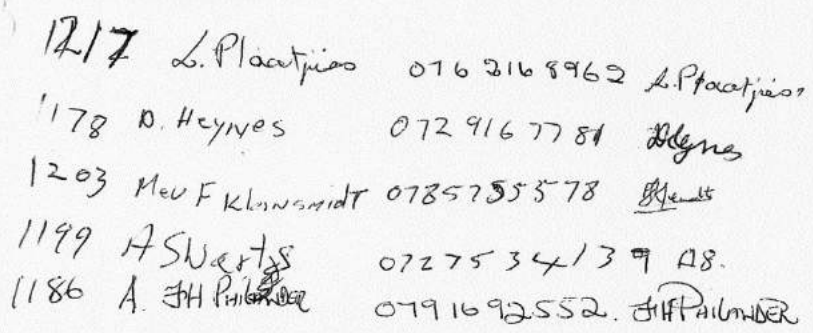 1217 L. Plaatjies 076 216 8962 L. Plaatjies
1178 D. Heynes 072 916 7781 Heynes
1203 Mev F Kleinsmidt
1199 A Swartz 072 75 34139 AS.
1186 A. JH PHILANDER 0791692552. JH PHILANDER